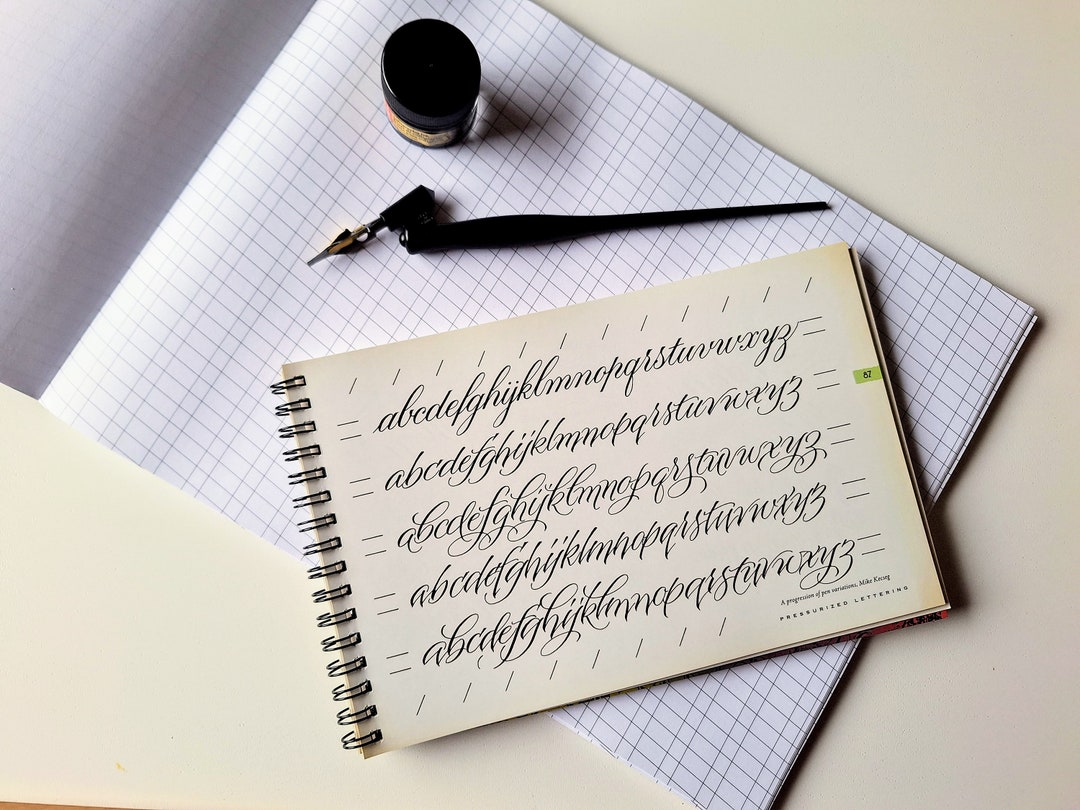 abcdefghijklmnopqrstuvwxyz
87
abcdefghijklmnopqrstuvwxyz
abcdefghijklmnopqrstuvwxyz
abcdefghijklmnopqrstuvwxyz
abcdefghijklmnopqrstuvwxyz
A progression of pen variations, Mike Kecseg
PRESSURIZED LETTERING